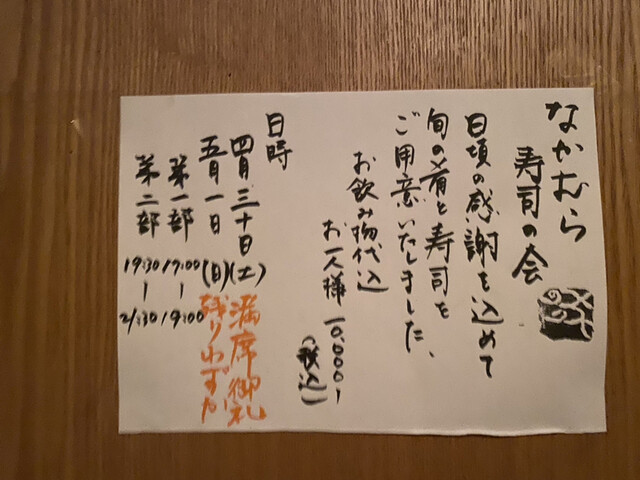 なかむら
寿司の会
日頃の感謝を込めて
旬の肴と寿司を
ご用意いたしました、
お飲み物代込
お一人様 10,000-
(税込)
日時
四月三十日(土) 満席御礼
五月一日(日) 残りわずか
第一部 17:00-19:00
第二部 19:30-21:30